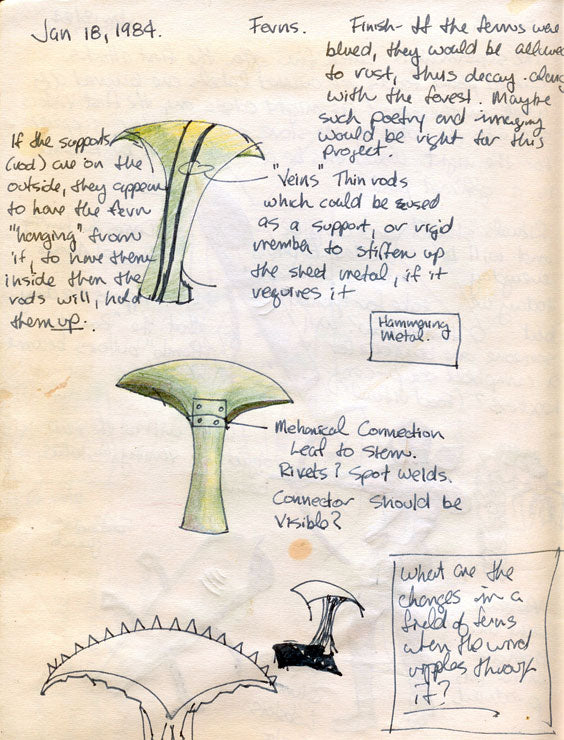 Jan 18, 1984.
Ferns.
Finish- If the ferns were
blued, they would be allowed
to rust, thus decay. along
with the forest. Maybe
such poetry and imaging
would be right for this
project.
If the supports
(rod) are on the
outside, they appear
to have the fern
"hanging" from
it, to have them
inside then the
rods will, hold
them up.
"Veins" Thin rods
which could be used
as a support, or rigid
member to stiffen up
the sheet metal, if it
requires it
Hammering
Metal.
Mehanical Connection
Leaf to Stem.
Rivets? Spot welds.
Connector should be
Visible?
What are the
changes in a
field of ferns
when the wind
ripples through
it?